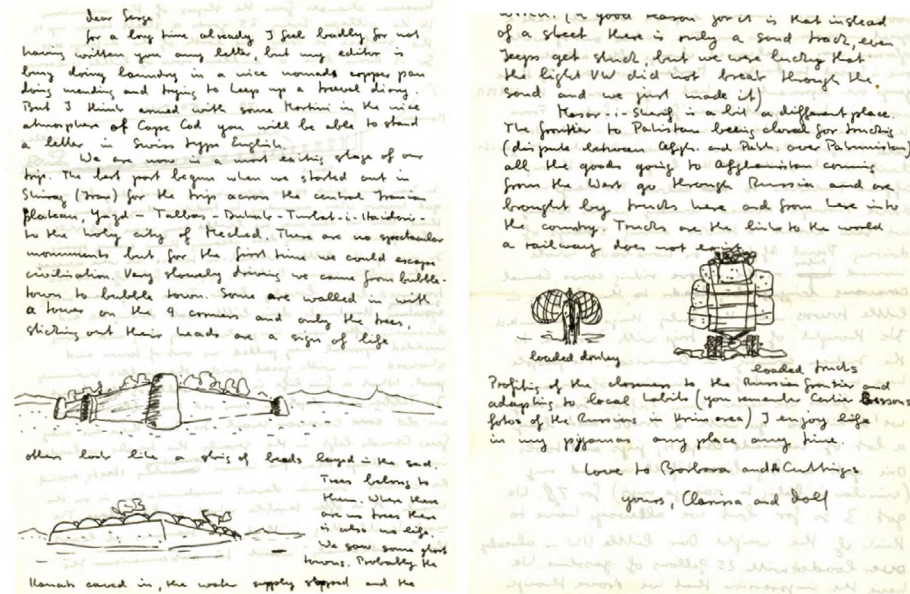 dear Serge
for a long time already I feel badly for not
having written you my letter, but my editor is
busy doing laundry in a nice nomads copper pan
doing mending and trying to keep up a travel diary.
But I think armed with some Martini in the nice
atmosphere of Cape Cod you will be able to stand
a letter in Swiss type English.
We are now in a most exciting stage of our
trip. The last part begun when we started out in
Shiraz (Iran) for the trip across the central Iranian
plateau, Yazd - Tabbas - - Turbat-i-Haidari -
to the holy city of Meched. There are no spectacular
monuments but for the first time we could escape
civilisation. Very slowly driving we came from bubble-
town to bubble town. Some are walled in with
a tower on the 4 corners and only the trees,
sticking out their heads are a sign of life
others look like a string of beads layed in the sand.
Trees belong to
them. Where there
are no trees there
is also no life.
We saw some ghost
towns. Probably the
Kanats caved in, the water supply stopped and the
which. (A good reason for it is that instead
of a street there is only a sand track, even
Jeeps get stuck, but we were lucky that
the light VW did not break through the
sand and we just made it)
Masar-i-Sherif is a bit a different place.
The frontier to Pakistan being closed for trucking
(dispute between Afgh. and Pakh. over Pakhtunistan)
all the goods going to Afghanistan coming
from the West go through Russia and are
brought by trucks here and from here into
the country. Trucks are the links to the world
a railway does not exist.
loaded donkey
loaded trucks
Profiting of the closeness to the Russian frontier and
adapting to local habits (you remember Cartier Bressons
fotos of the Russians in their area) I enjoy life
in my pyjamas any place any time.
Love to Barbara and Cuttings
yours, Clarissa and Dolf